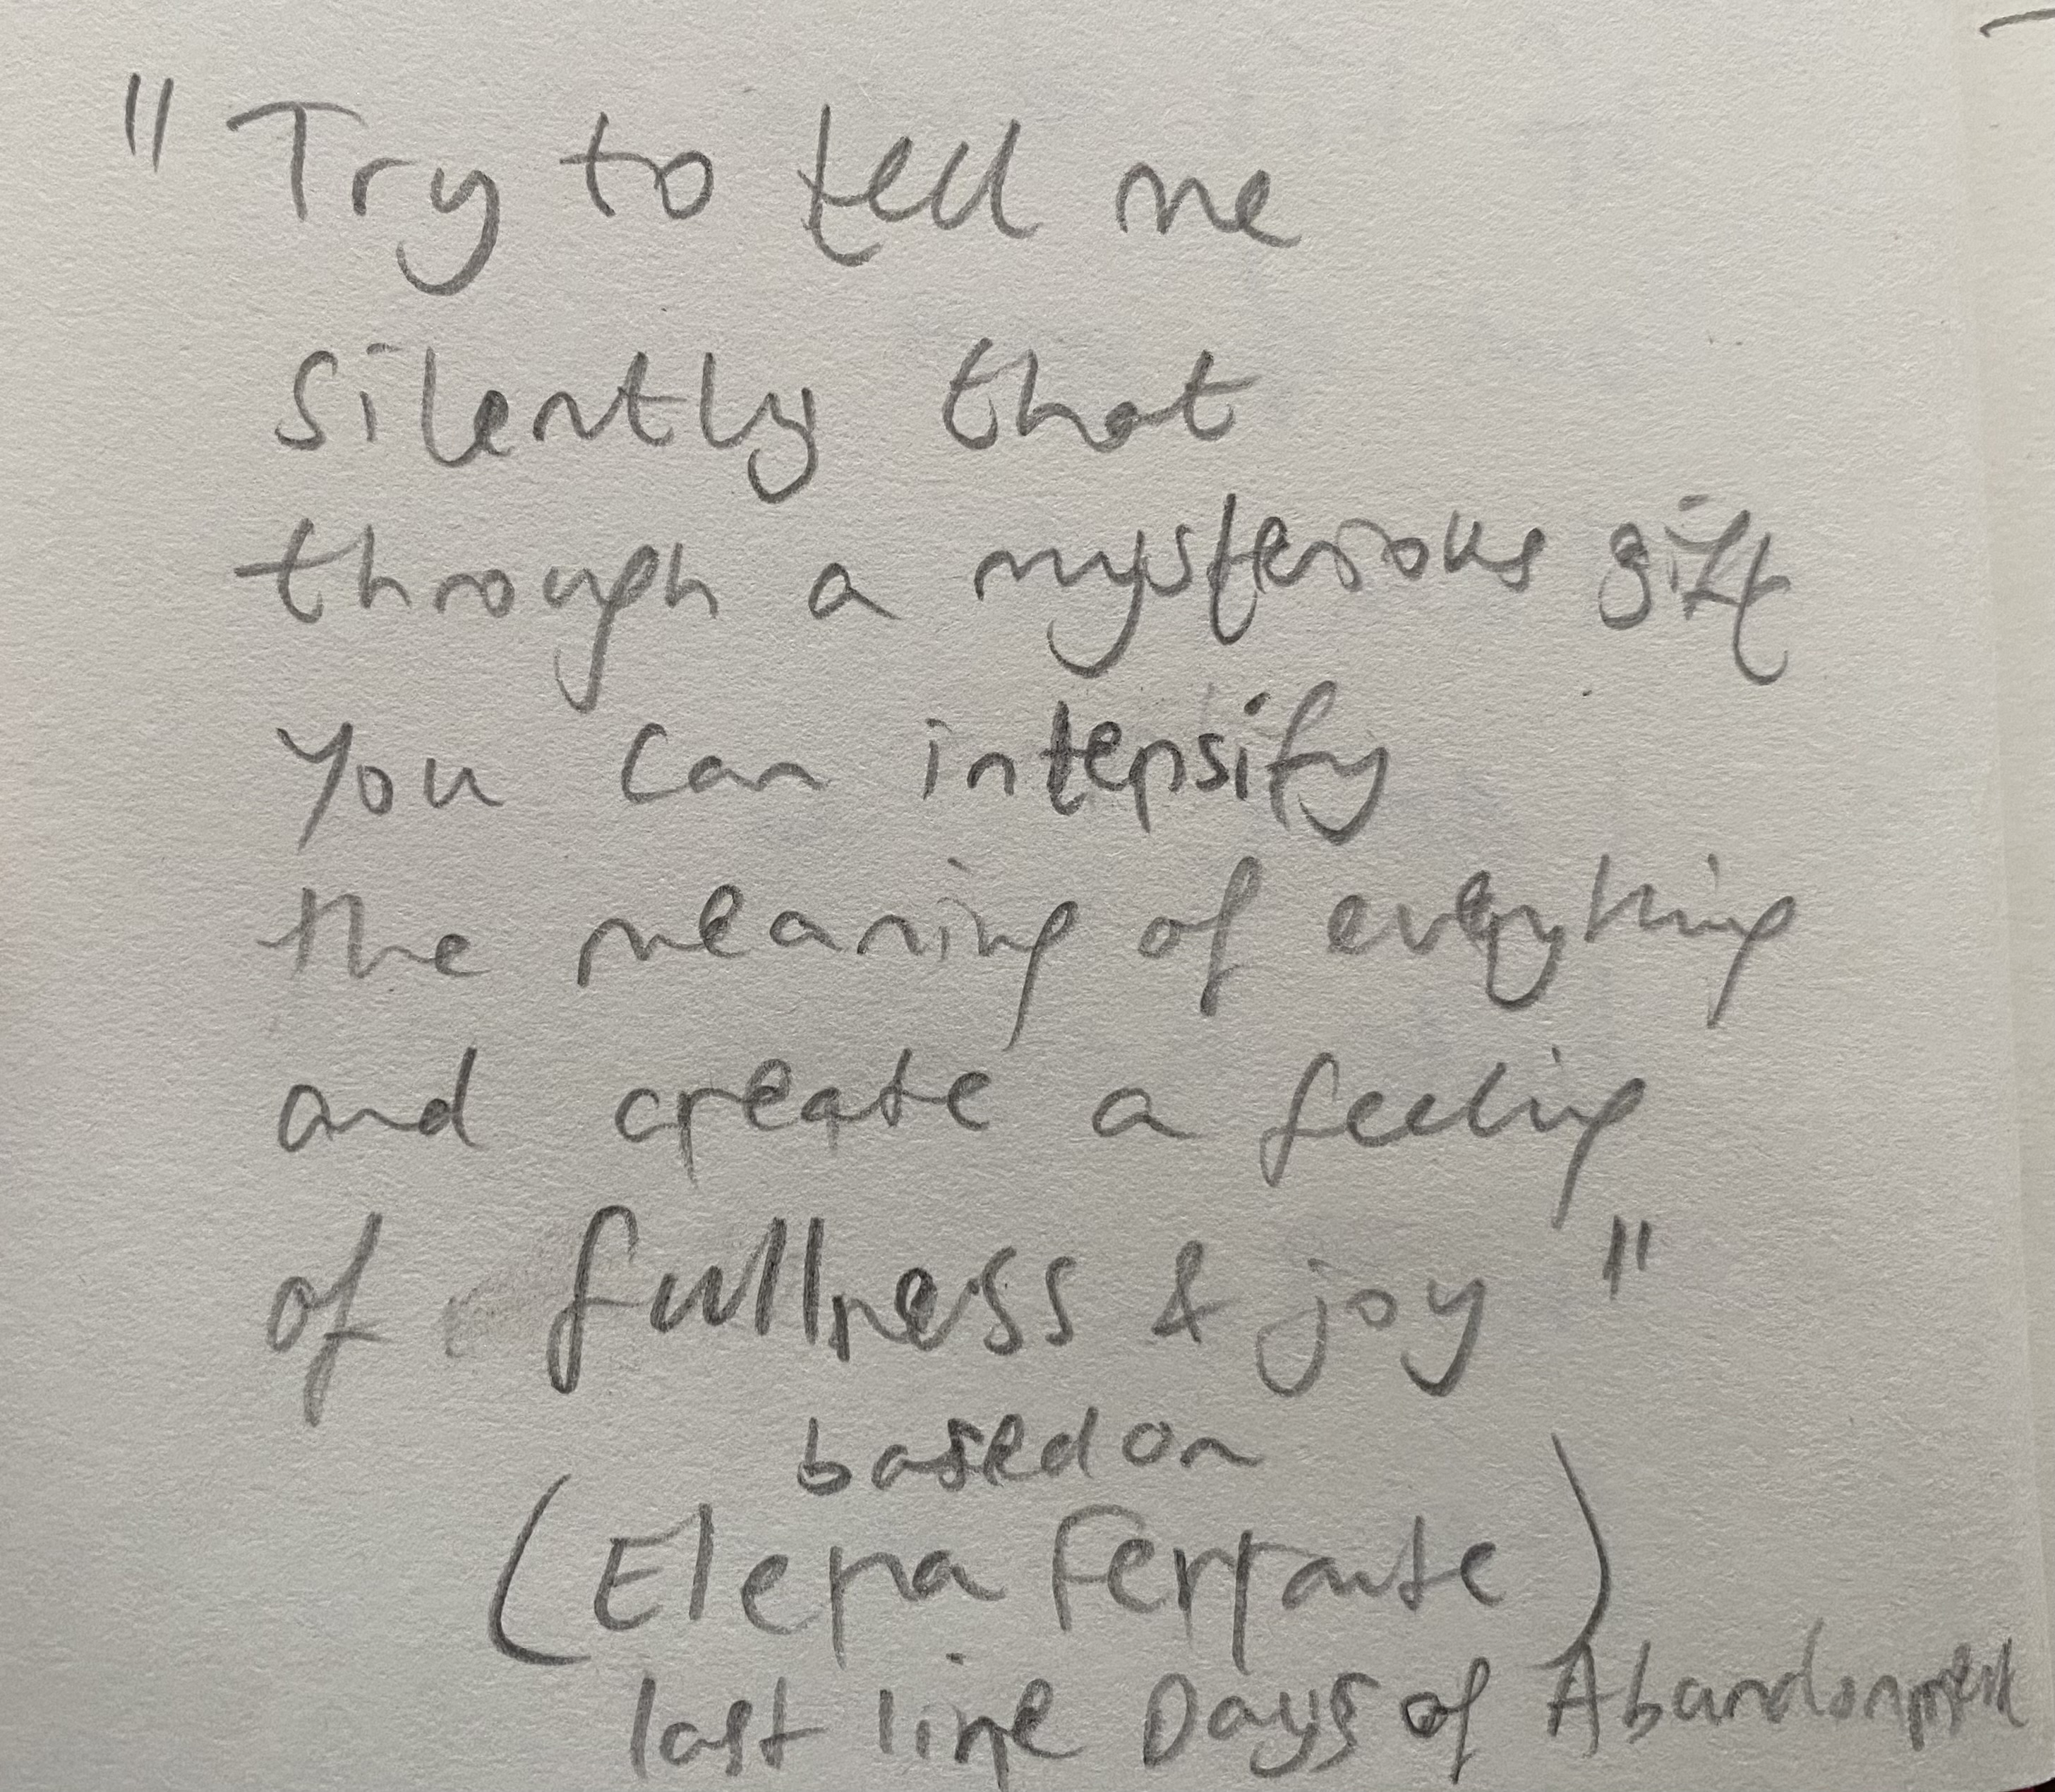 "Try to tell me
silently that
through a mysterious gift
you can intensify
the meaning of everything
and create a feeling
of fullness & joy"
based on
(Elena Ferrante)
last line Days of Abandonment